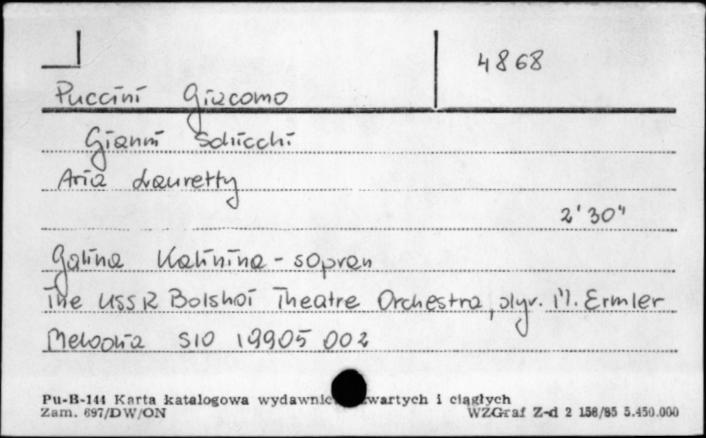 4868
Puccini Giacomo
Gianni Schicchi
Aria Lauretty
2'30"
Galina Kalinina - sopran
The USSR Bolshoi Theatre Orchestra, dyr. M. Ermler
Melodia S10 19905 002
Pu-B-144 Karta katalogowa wydawnic wartych i ciągłych
Zam. 697/DW/ON WZGraf Z-d 2 156/85 5.450.000